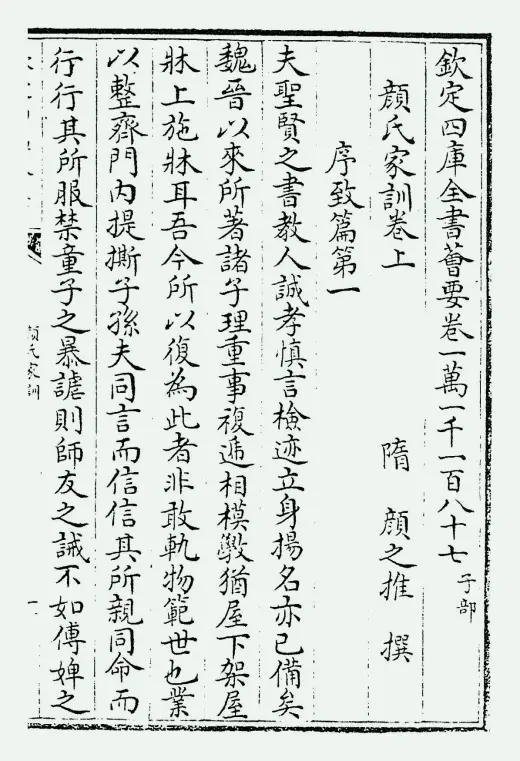 欽定四庫全書薈要卷一萬一千一百八十七 子部
顔氏家訓卷上
隋 顔之推 撰
序致篇第一
夫聖賢之書教人誠孝慎言檢迹立身揚名亦已備矣
魏晉以來所著諸子理重事複遞相模斆猶屋下架屋
牀上施牀耳吾今所以復為此者非敢軌物範世也業
以整齊門内提撕子孫夫同言而信信其所親同命而
行行其所服禁童子之暴謔則師友之誡不如傅婢之
顔氏家訓
一